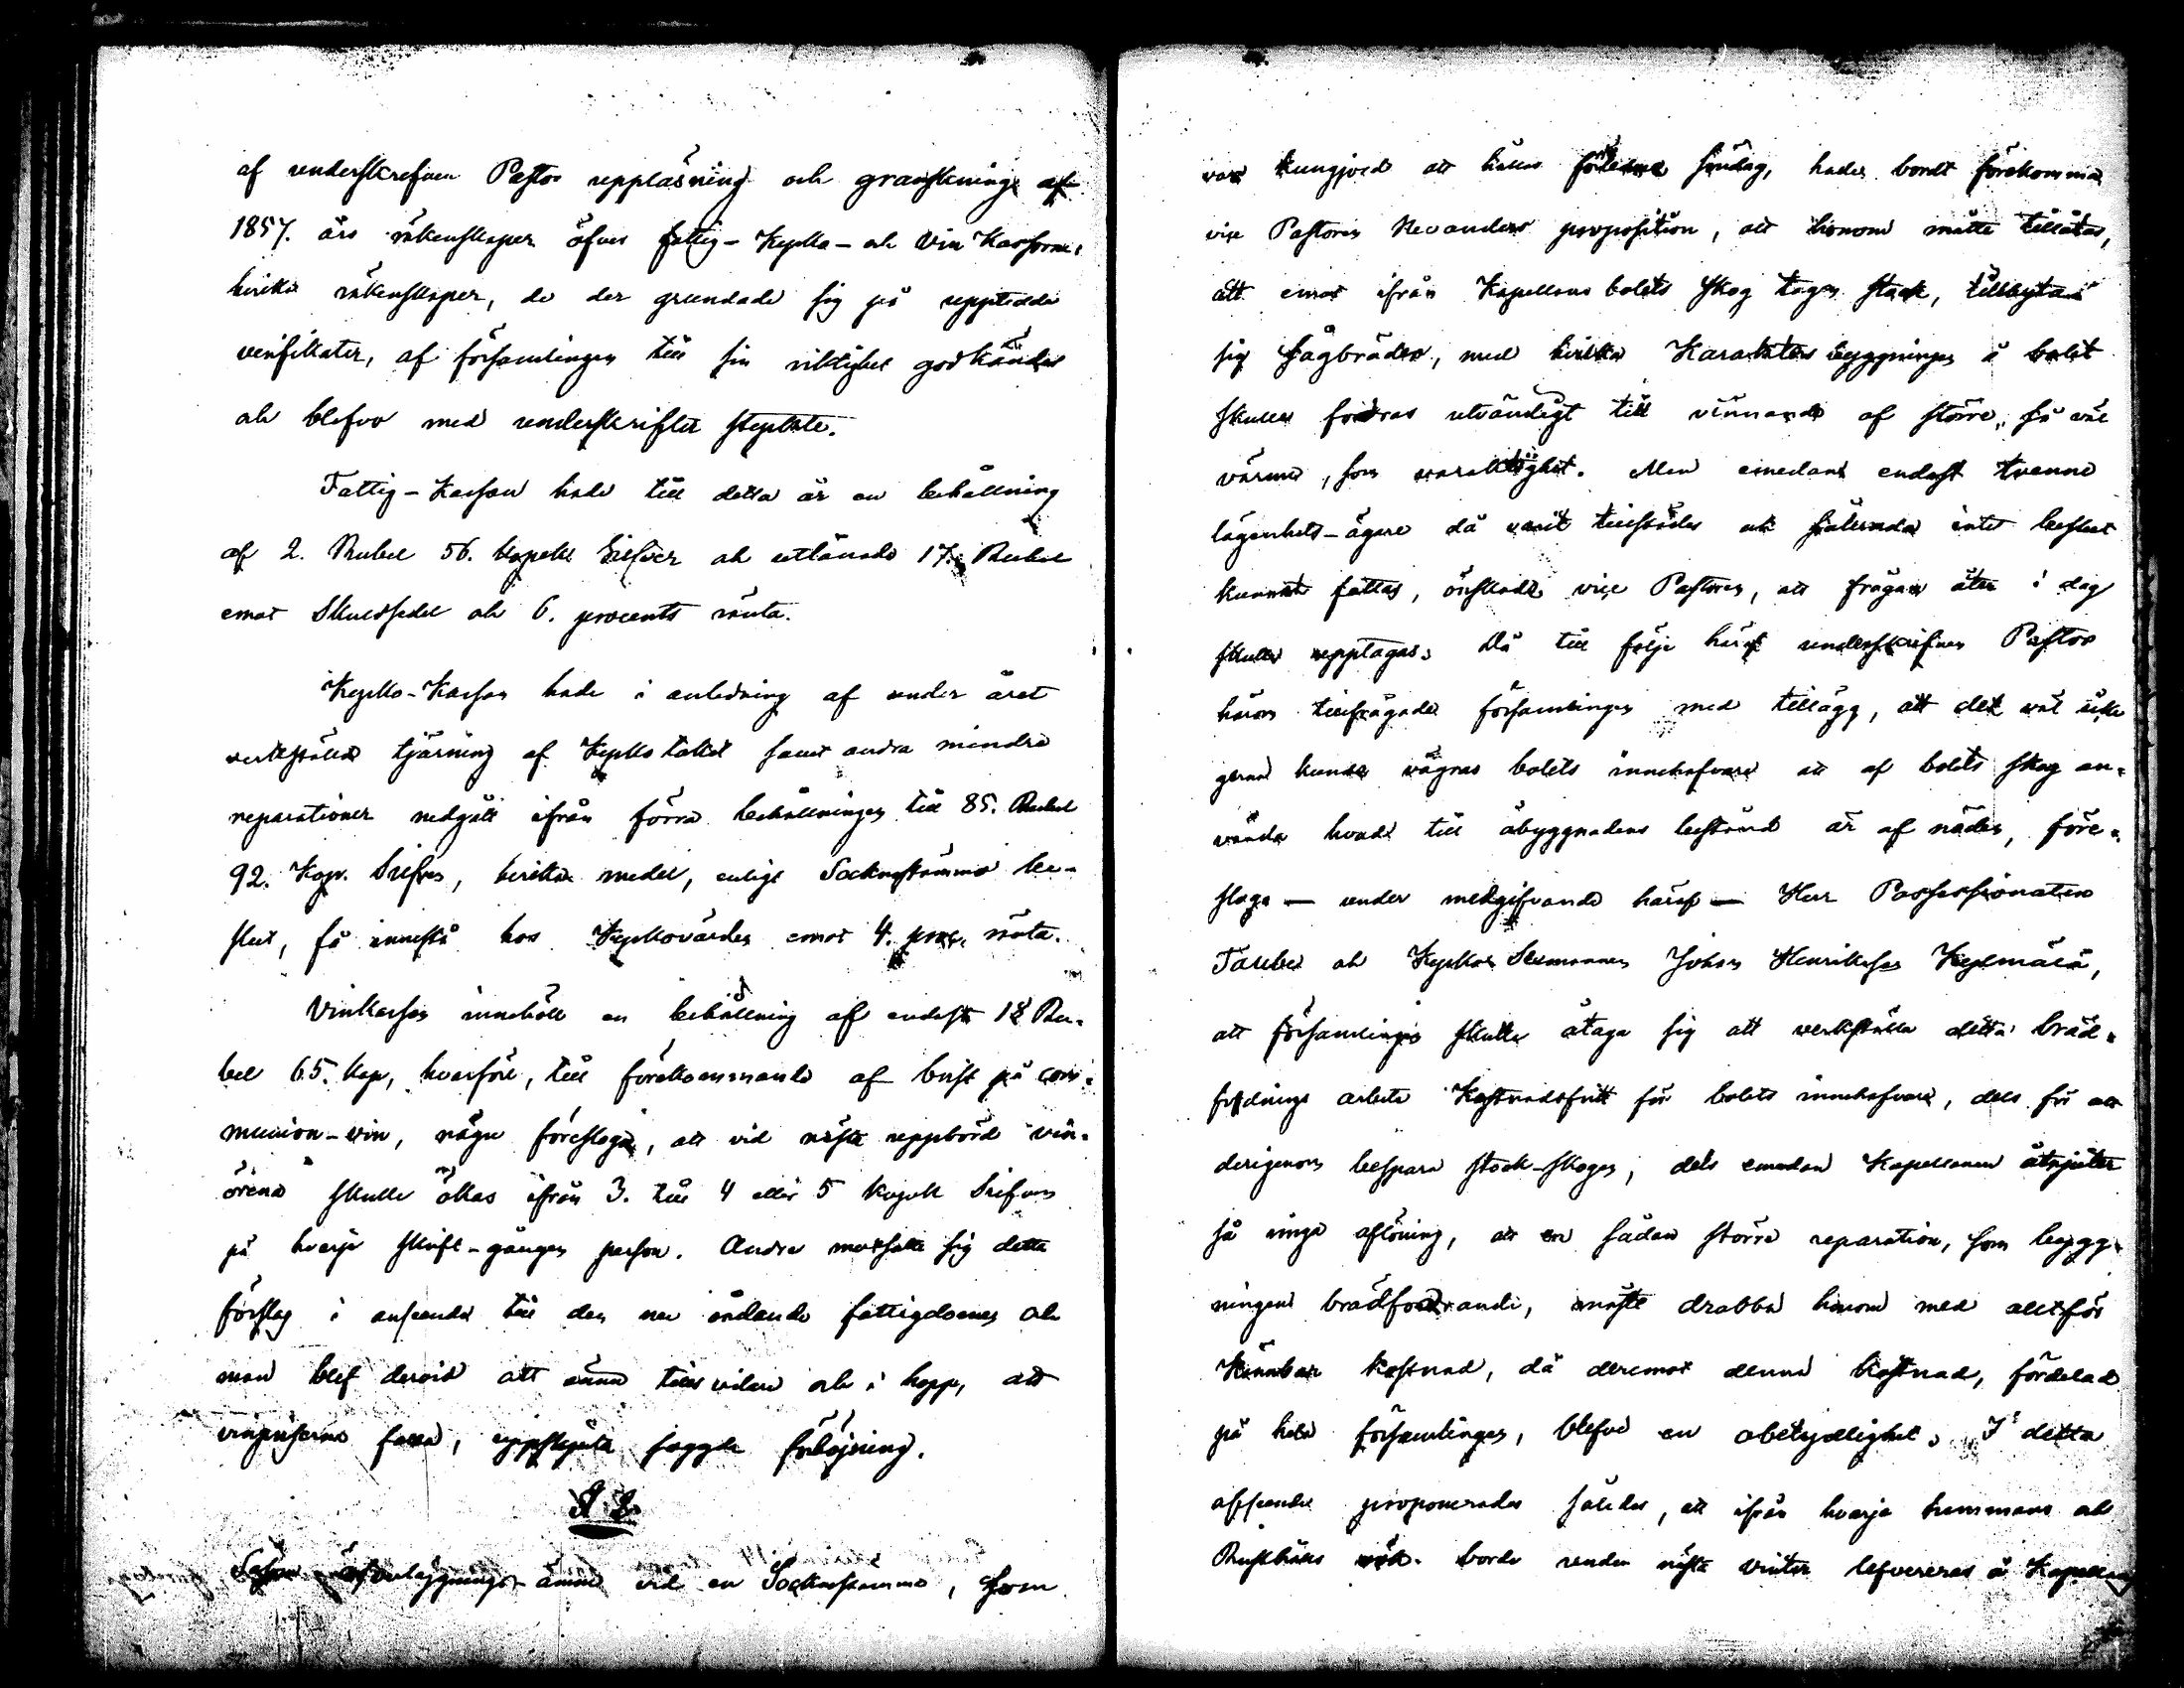 af underskrefven Pastor uppläsning och granskning af
1857. års räkenskaper öfver fattig- Kyrko- och Vin Kassorne,
hvilka räkenskaper, de der grundade sig på uppteddа
verifikater, af församlingen till sin riktighet godkändes
och blefvo med underskrifter styrkte.
Fattig-Kassan hade till detta år en behållning
af 2. Rubel 56. kopek Silfver och utlånade 17. Rubel
emot Skuldsedel och 6. procents ränta.
Kyrko-Kassan hade i anledning af under året
verkställd tjärning af Kyrko taket samt andra mindre
reparationer nedgått ifrån förra behållningen till 85. Rubel
92. Kop. Silfver, hvilka medel, enligt Sockenstämmo be-
slut, få innestå hos Kyrkovärden emot 4. proc. ränta.
Vinkassan innehöll en behållning af endast 18 Ru-
bel 65. kop, hvarföre, till förekommande af brist på com-
munion-vin, några föreslogo, att vid nästa uppbörd vin-
örena skulle ökas ifrån 3. till 4 eller 5 kopek Silfver
på hvarje skrift-gången person. Andra motsatte sig detta
förslag i anseende till den nu rådande fattigdomen och
man blef dervid att ännu tills vidare och i hopp, att
vinpriserna falla, uppskjuta sagde förhöjning.
§ 2.
Såsom öfverläggnings-ämne vid en Sockenstämma, som
var kungjord att hållas förledne söndag, hade bordt förekomma
vice Pastoren Nevanders proposition, att honom måtte tillåtas,
att emot ifrån Kapellans bolets skog tagen stock, tillbyta
sig sågbräder, med hvilka Karakters byggningen å bolet
skulle fodras utvändigt till vinnande af större, så väl
värme, som varaktighet. Men emedan endast tvenne
lägenhets-ägare då varit tillstädes och sålunda intet beslut
kunnat fattas, önskade vice Pastoren, att frågan åter i dag
skulle upptagas. Då till följe häraf underskrifven Pastor
härom tillfrågade församlingen med tillägg, att det väl icke
gerna kunde vägras bolets innehafvare att af bolets skog an-
vända hvad till åbyggnadens bestånd är af nöden, före-
slogo — under medgifvande häraf — Herr Possessionaten
Taube och Kyrko Sexmannen Johan Henriksson Kylmälä,
att församlingen skulle åtaga sig att verkställa detta bräd-
fodrings arbete Kostnadsfritt för bolets innehafvare, dels för att
derigenom bespara stock-skogen, dels emedan Kapellanen åtnjuter
så ringa aflöning, att en sådan större reparation, som bygg-
ningens brädfodrande, måste drabba honom med alltför
kännbar kostnad, då deremot denna kostnad, fördelad
på hela församlingen, blefve en obetydlighet. I detta
afseende proponerades således, att ifrån hvarje hemmans och
Rusthålls rök borde under nästa vinter lefvereras å Kapellans